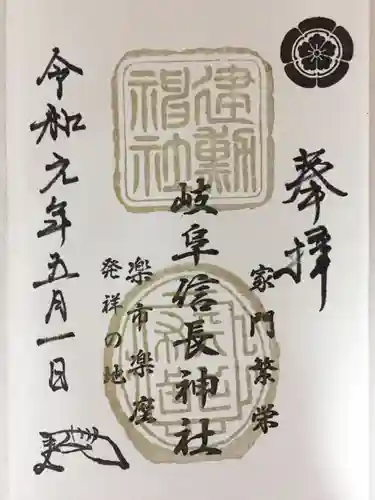 奉拝
家門繁栄
岐阜信長神社
楽市楽座
発祥の地
令和元年五月一日
建勲
神社